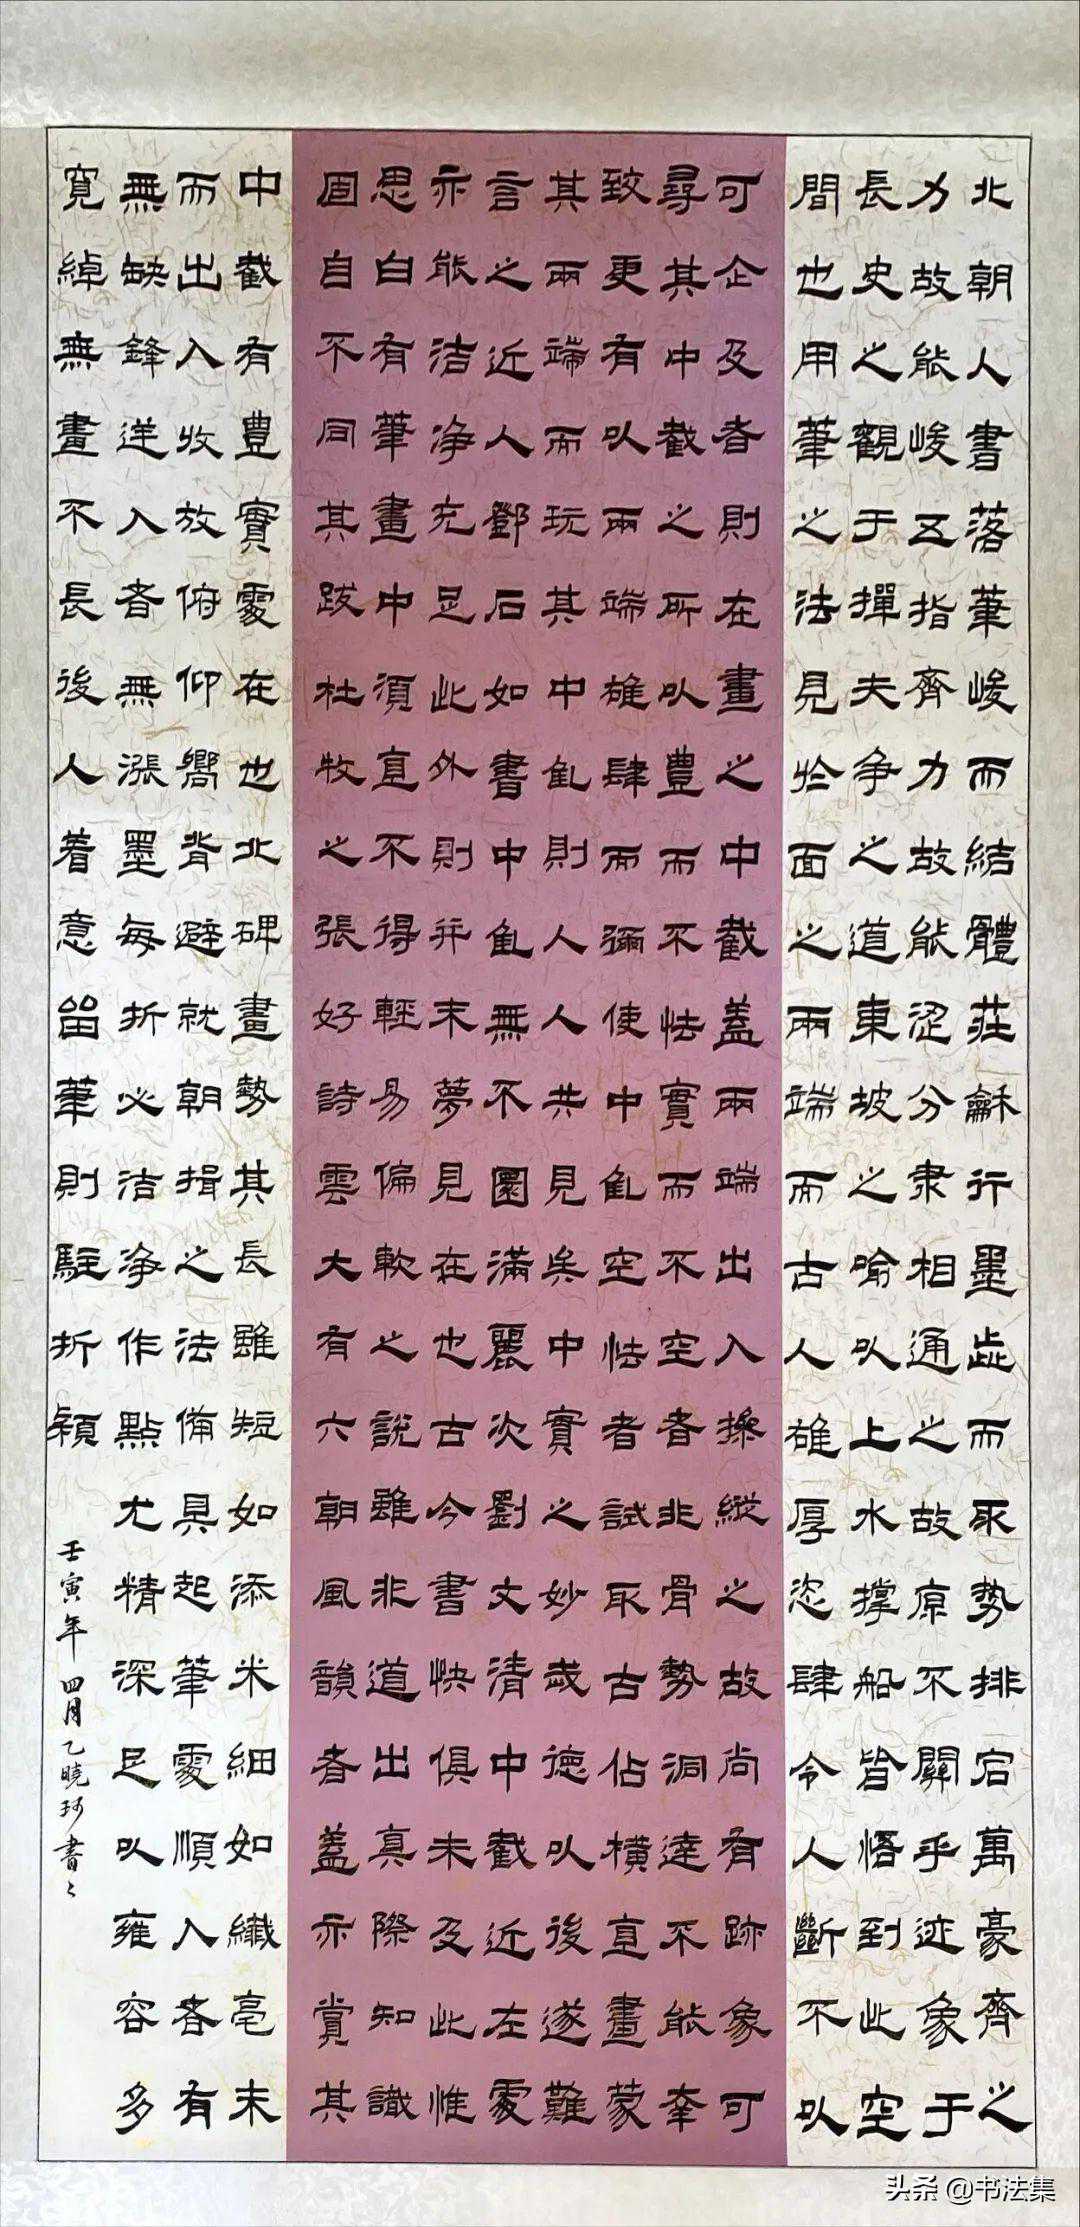 北朝人書落筆峻而結體莊龢行墨歮而取勢排宕萬豪齊之
力故能峻五指齊力故能澀分隶相通之故原不關乎迹象于
長史之觀于擔夫争之道東坡之喻以上水撐船皆悟到此空
間也用筆之法見於面之兩端而古人雄厚恣肆令人斷不以
可企及者則在畫之中截盖兩端出入操縱之故尚有跡象可
尋其中截之所以豊而不怯實而不空者非骨勢洞達不能牽
致更有以兩端雄肆而彌使中空怯者試取古佔横直畫蒙
其兩端而玩其中則人人共見矣中實之妙武德以後遂難
言之近人鄧石如書中無不圓滿麗次劉文清中截近左處
亦能洁净充足此外則并未夢見在也古今書怏俱未及此惟
思白有筆畫中須直不得輕易偏軟之說雖非道出真際知識
固自不同其跋杜牧之張好詩雲大有六朝風韻者盖亦賞其
中截有豊實處在也北碑畫勢其長雖短如添米細如纖亳末
而出入收放俯仰嚮背避就朝揖之法備具起筆處順入者有
無缺鋒逆入者無漲墨每折必洁净作點尤精深足以雍容多
寬綽無畫不長後人着意留筆則駐折穎
壬寅年四月乙曉珂書
头条 @书法集